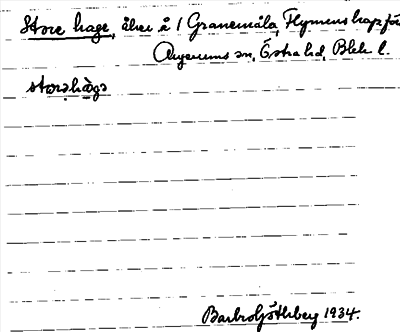 Store hage, åker å 1 Granemåla, Flymens kapför
Augerums sn, Östra hd, Blek l.
storəhàgə
Barbro Göthberg 1934.